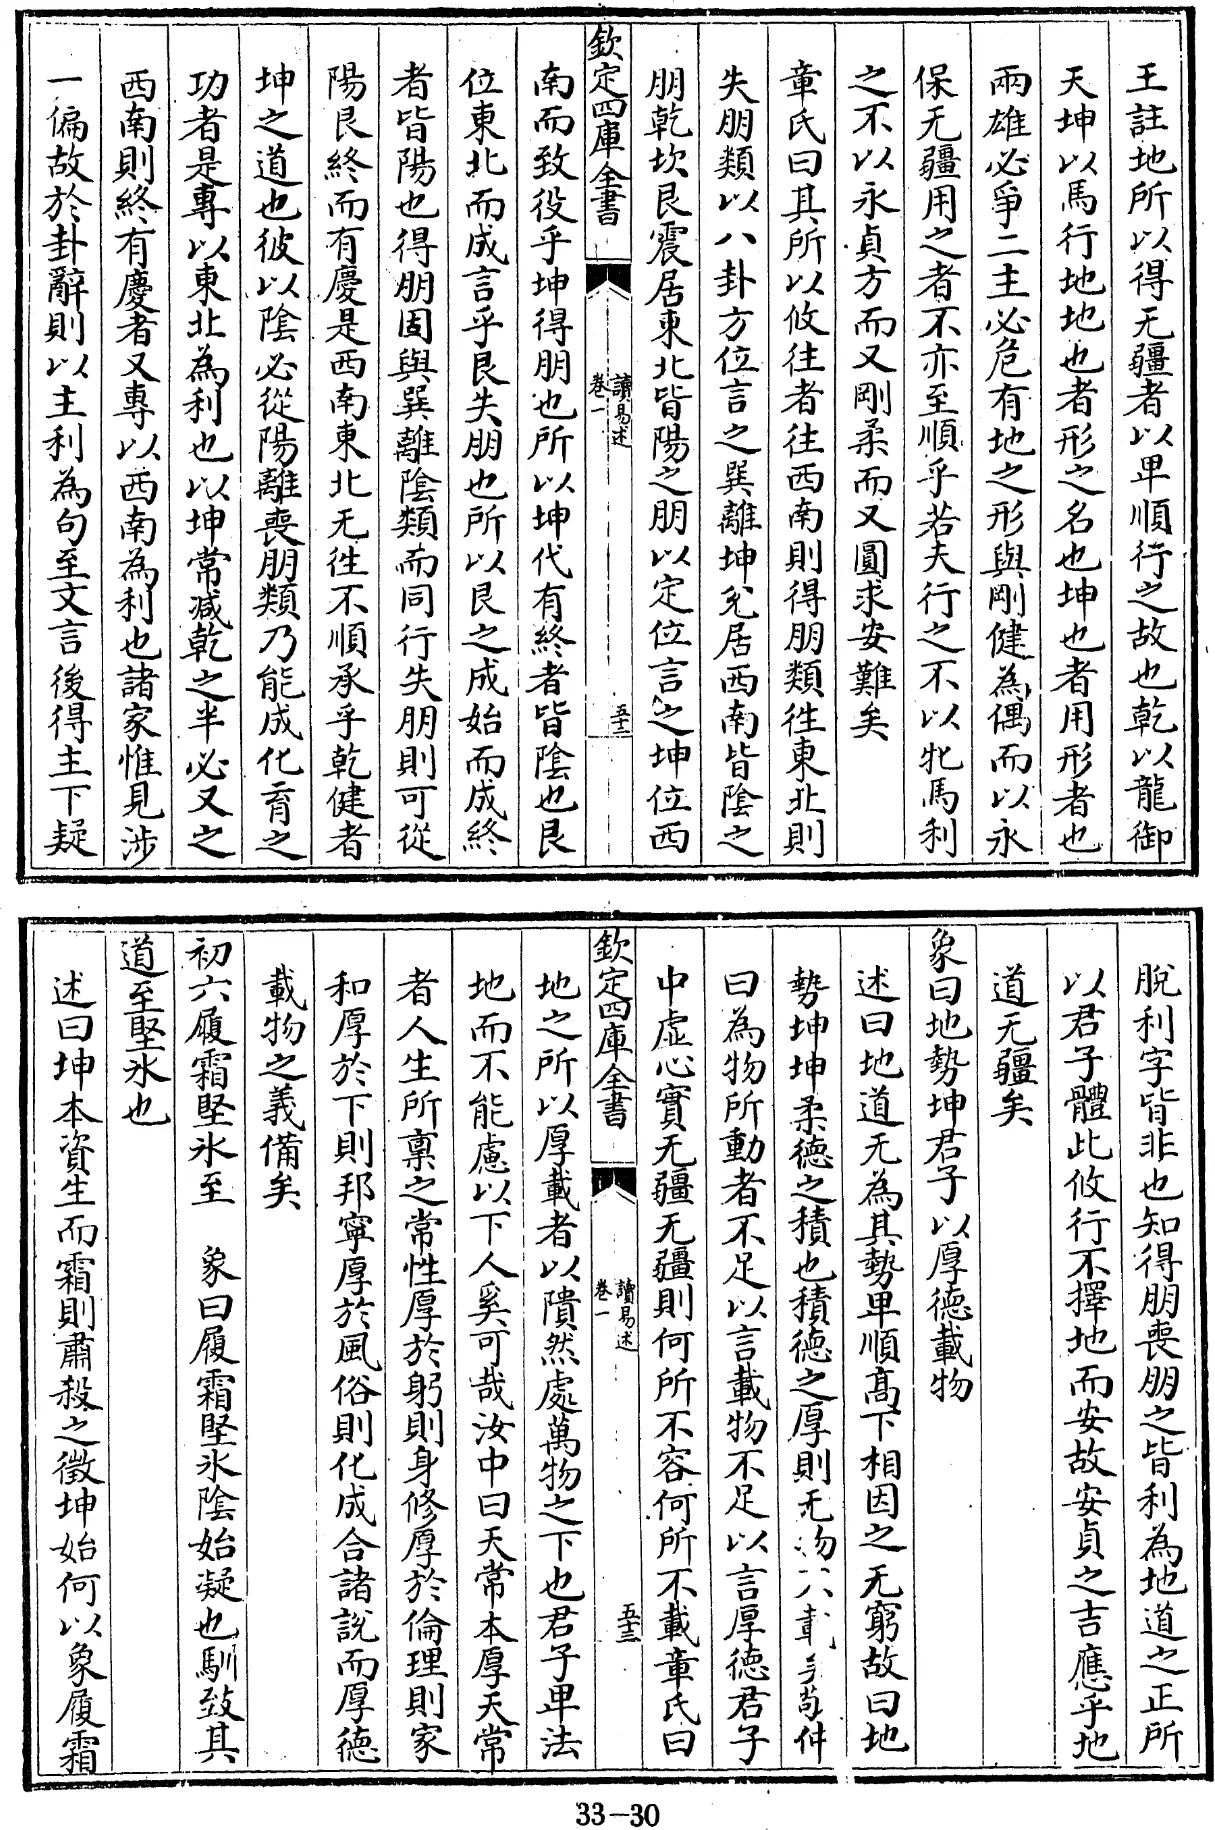 王註地所以得无疆者以卑順行之故也乾以龍御
天坤以馬行地地也者形之名也坤也者用形者也
兩雄必爭二主必危有地之形與剛健為偶而以永
保无疆用之者不亦至順乎若夫行之不以牝馬利
之不以永貞方而又剛柔而又圓求安難矣
章氏曰其所以攸往者往西南則得朋類往東北則
失朋類以八卦方位言之巽離坤兌居西南皆陰之
朋乾坎艮震居東北皆陽之朋以定位言之坤位西
欽定四庫全書
讀易述
卷一
五十二
南而致役乎坤得朋也所以坤代有終者皆陰也艮
位東北而成言乎艮失朋也所以艮之成始而成終
者皆陽也得朋固與巽離陰類而同行失朋則可從
陽艮終而有慶是西南東北无往不順承乎乾健者
坤之道也彼以陰必從陽離喪朋類乃能成化育之
功者是專以東北為利也以坤常減乾之半必又之
西南則終有慶者又專以西南為利也諸家惟見涉
一偏故於卦辭則以主利為句至文言後得主下疑
脫利字皆非也知得朋喪朋之皆利為地道之正所
以君子體此攸行不擇地而安故安貞之吉應乎地
道无疆矣
象曰地勢坤君子以厚德載物
述曰地道无為其勢卑順高下相因之无窮故曰地
勢坤坤柔德之積也積德之厚則无物不載
曰為物所動者不足以言載物不足以言厚德君子
中虛心實无疆无疆則何所不容何所不載章氏曰
欽定四庫全書
讀易述
卷一
五十三
地之所以厚載者以隤然處萬物之下也君子卑法
地而不能慮以下人奚可哉汝中曰天常本厚天常
者人生所禀之常性厚於躬則身修厚於倫理則家
和厚於下則邦寧厚於風俗則化成合諸說而厚德
載物之義備矣
初六履霜堅氷至　象曰履霜堅氷陰始凝也馴致其
道至堅氷也
述曰坤本資生而霜則肅殺之徵坤始何以象履霜
33-30